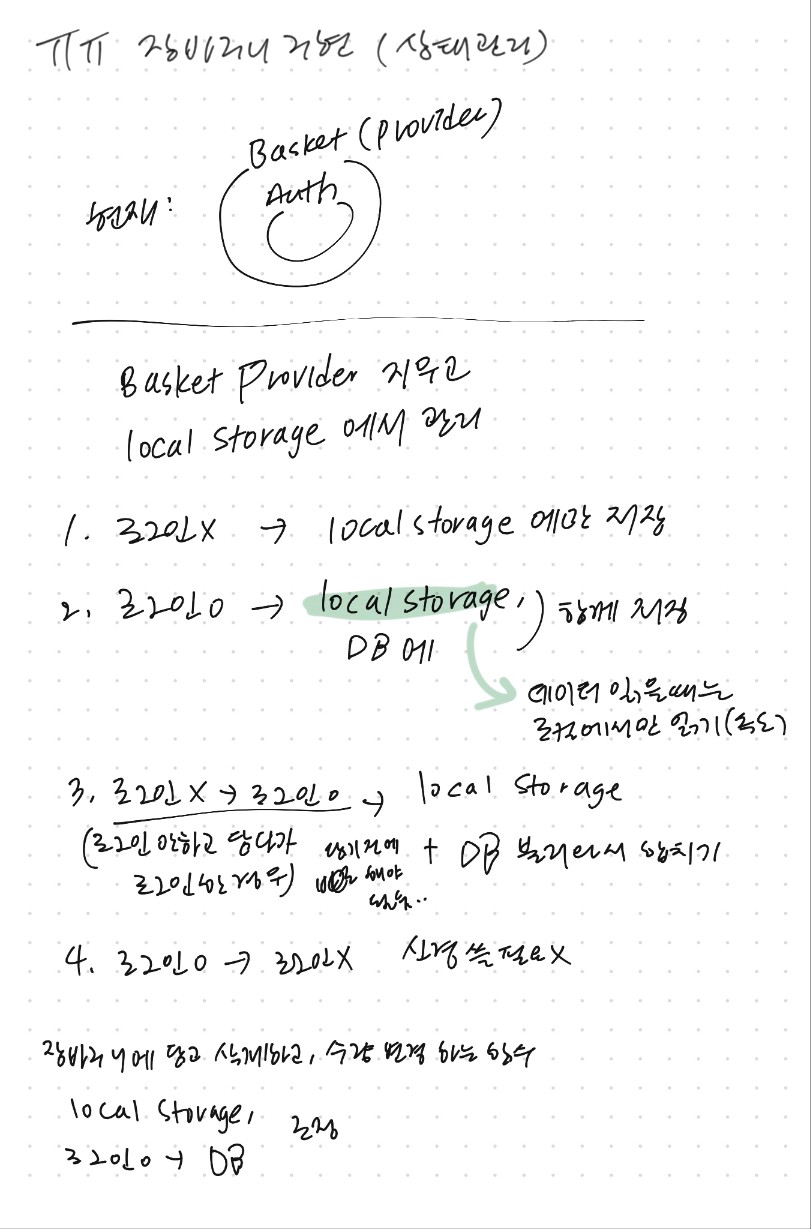 ππ 장바구니 구현 (상태관리)
Basket (Provider)
Auth
현재:
Basket Provider 지우고
local storage 에서 관리
1. 로그인X → local storage 에만 저장
2. 로그인O → local storage,) 함께 저장
DB 에
데이터 읽을때는
로컬에서만 읽기(속도)
3. 로그인X → 로그인O → local storage
(로그인 안하고 담다가
로그인한 경우)
+ DB 불러와서 합치기
담기전에
해야
4. 로그인O → 로그인X 신경 쓸 필요X
장바구니에 담고 삭제하고, 수량 변경 하는 함수
local storage,
로그인O → DB